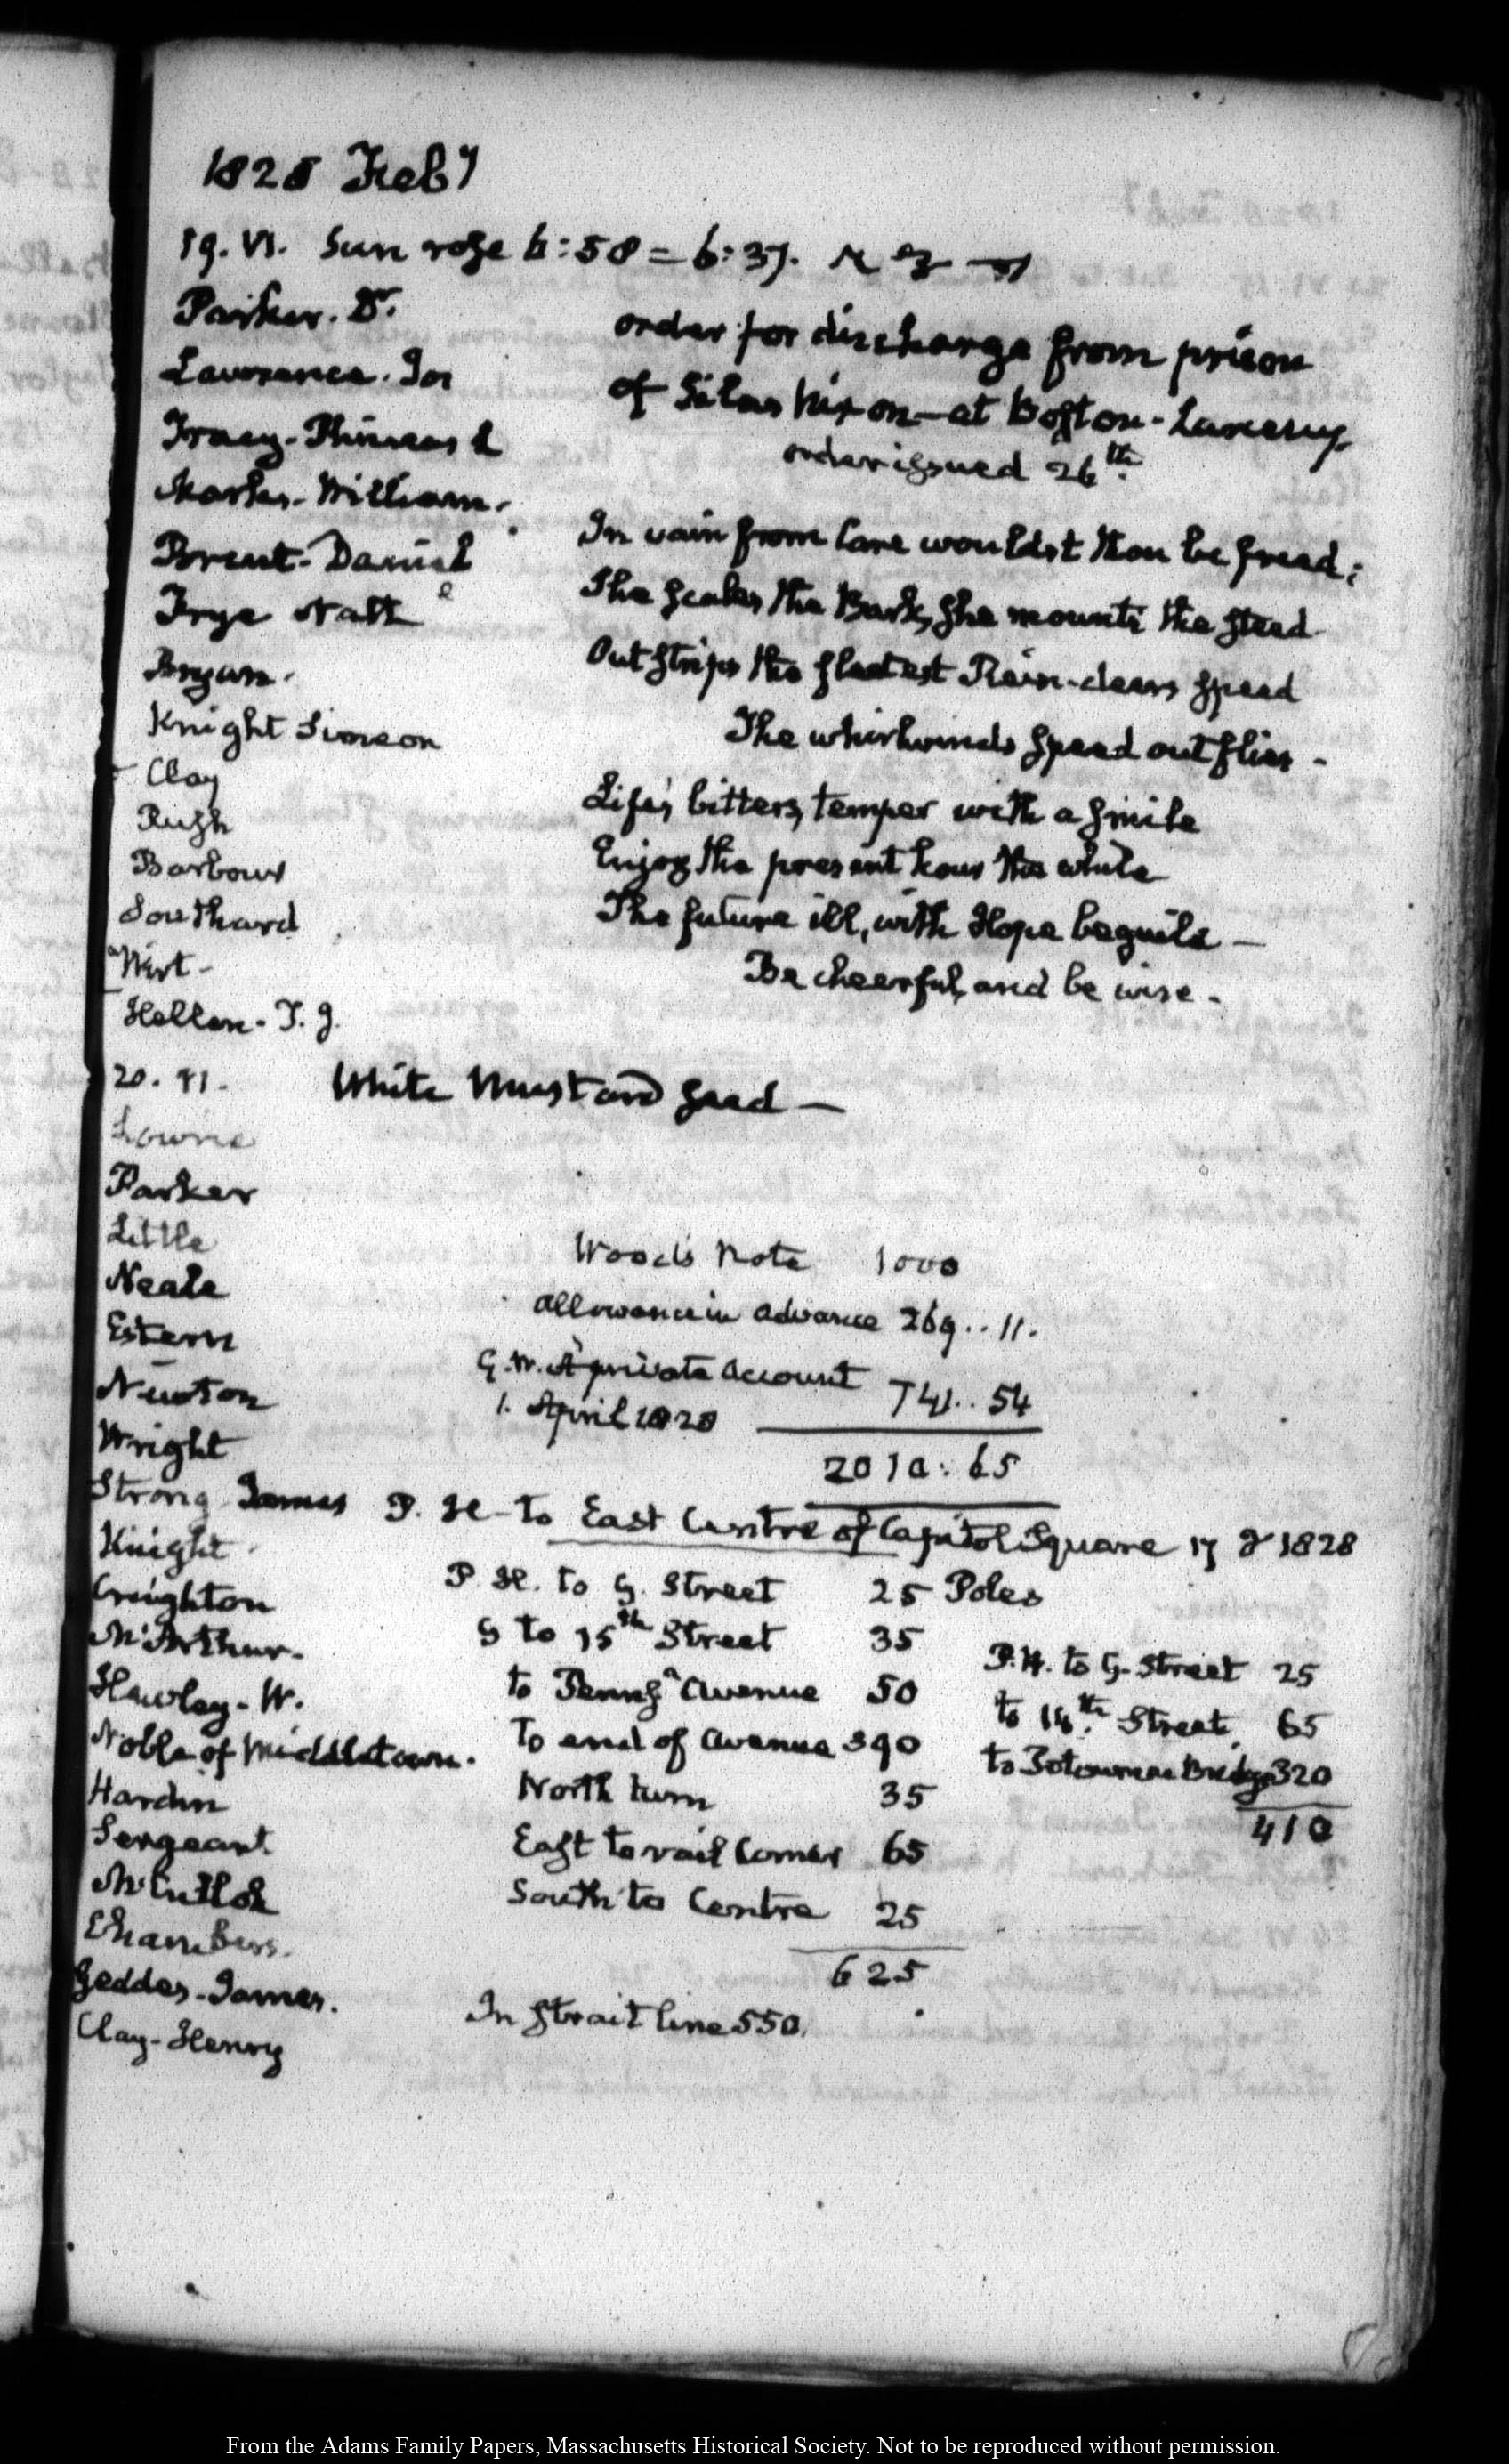 1828 Feby
19. VI. Sun rose 6:58 = 6:37.
Parker. D.
Lawrence. Jos
Tracy. Phineas L
Marks. William.
Brent. Daniel
Frye Nathl
Bryan.
Knight Simeon
Clay
Rush
Barbour
Southard
Wirt
Hellen. J. G.
order for discharge from prison
of Silas Nixon - at Boston. Larceny.
order issued 26th.
In vain from Care wouldst thou be freed;
She scales the Bark, she mounts the steed
Outstrips the fleetest Rein-deers speed
The whirlwinds speed outflies -
Life's bitters, temper with a smile
Enjoy the present hour the while
The future ill, with Hope beguile -
Be cheerful, and be wise.
20. VI. White Mustard Seed -
Lowrie
Parker
Little
Neale
Estern
Newton
Wright
Strong James
Knight
Creighton
McArthur.
Hawley. W.
Noble of Middletown.
Hardin
Sergeant
Chambers.
Geddes. James.
Clay. Henry
Woods Note 1000
allowance in advance 269..11.
G. W. A private Account 741..54
1. April 1828
2010: 65
P. H - to East Centre of Capitol Square 17 1828
P H. to G. Street 25 Poles
G to 15th Street 35
to Pennsa Avenue 50
To end of Avenue 390
North turn 35
East to rail Corner 65
South to Centre 25
625
In strait line 550.
P. H. to G. Street 25
to 14th. Street, 65
to Potowmac Bridge 320
410
From the Adams Family Papers, Massachusetts Historical Society. Not to be reproduced without permission.